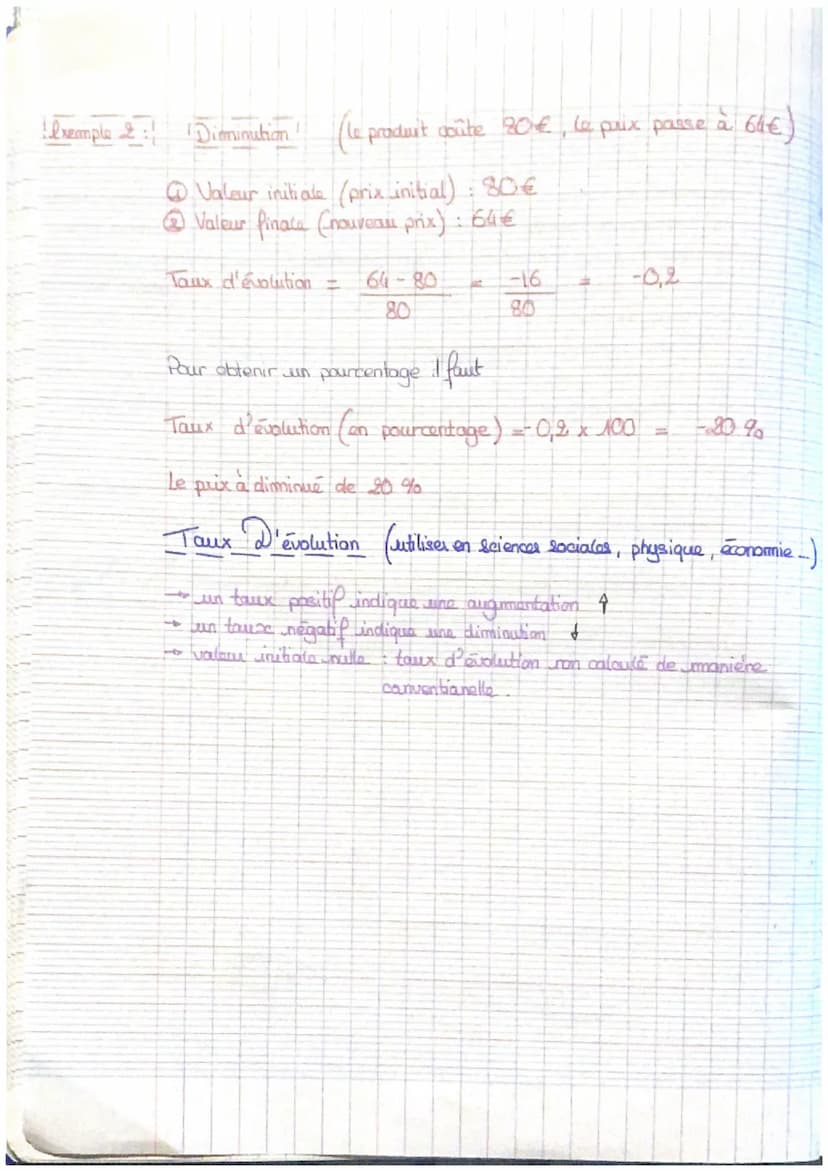 Exemple 2 : Diminution (le produit coûte 80€, le prix passe à 64€)
① Valeur initiale (prix initial) : 80€
② Valeur finale (nouveau prix) : 64€
Taux d'évolution = 64 - 80 / 80 = -16 / 80 = -0,2
Pour obtenir un pourcentage il faut
Taux d'évolution (en pourcentage) = -0,2 x 100 = -20 %
Le prix à diminué de 20 %
Taux D'évolution (utiliser en sciences sociales, physique, économie...)
→ un taux positif indique une augmentation ↑
→ un taux négatif indique une diminution ↓
→ valeur initiale nulle : taux d'évolution non calculé de manière
conventianelle.